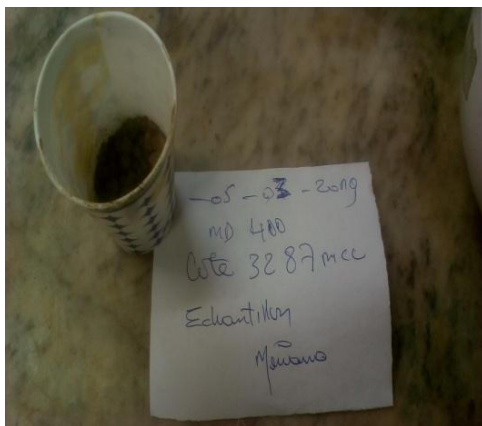 -05-03-2019
MD 400
Cote 3287 mcc
Echantillon